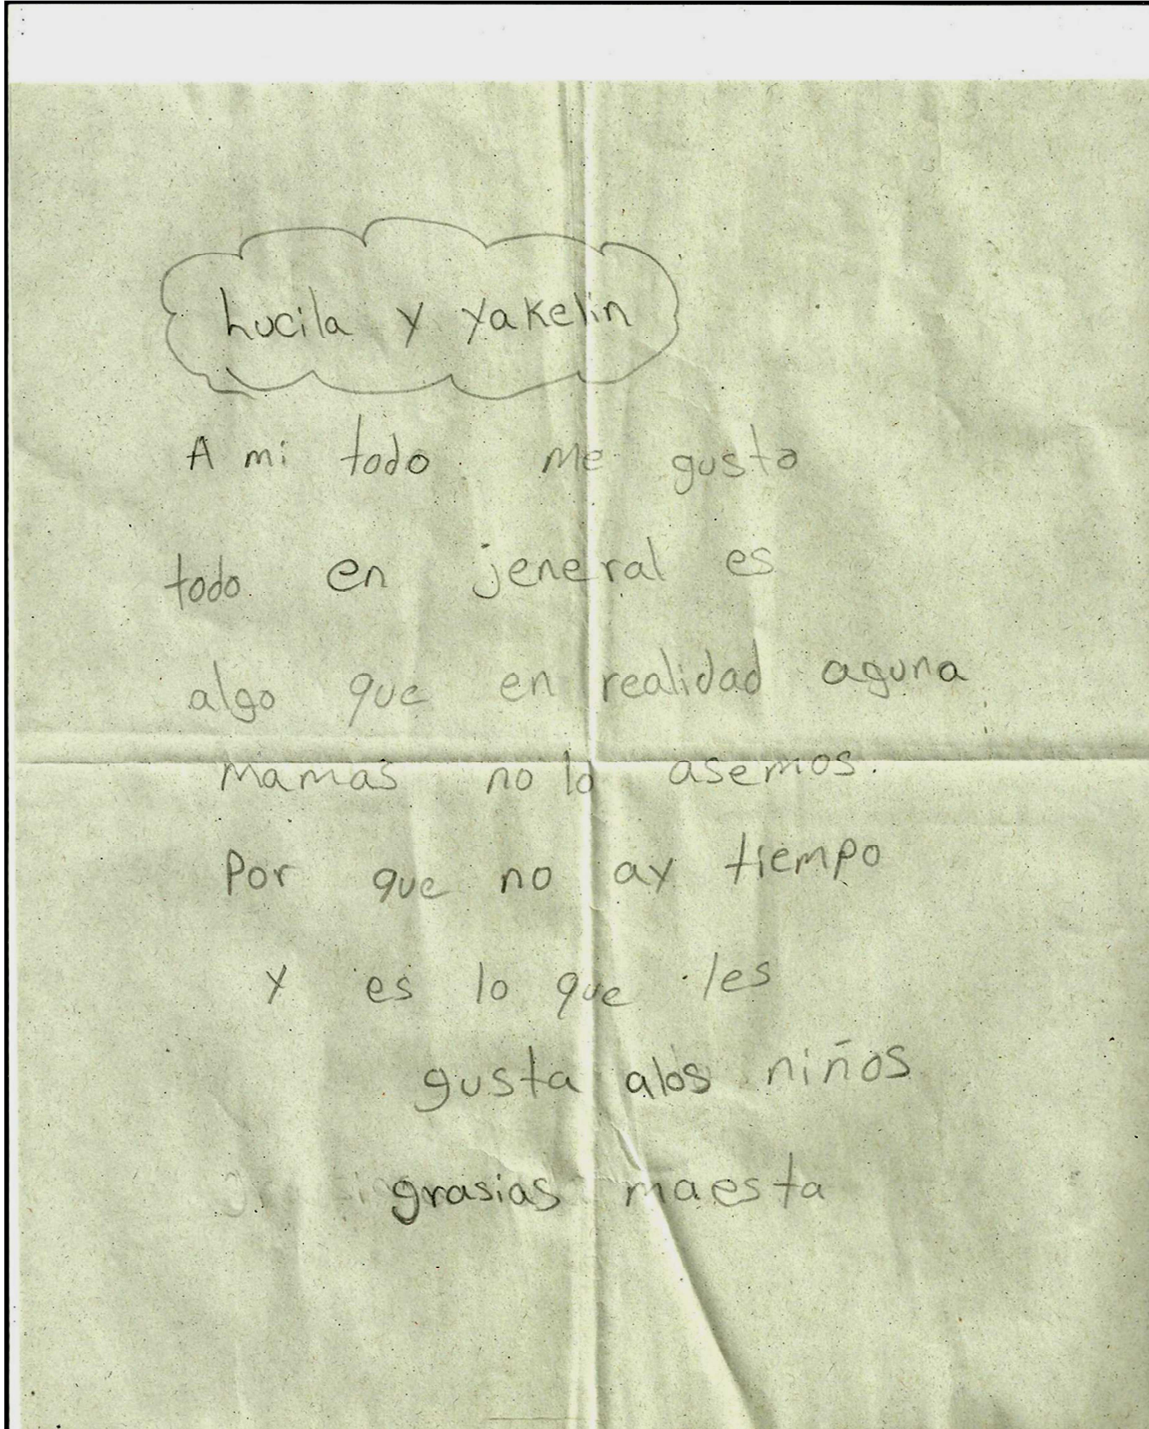 Lucila y yakelin
A mi todo me gusta
todo en jeneral es
algo que en realidad aguna
mamas no lo asemos.
Por que no ay tiempo
y es lo que les
gusta alos niños
grasias maesta